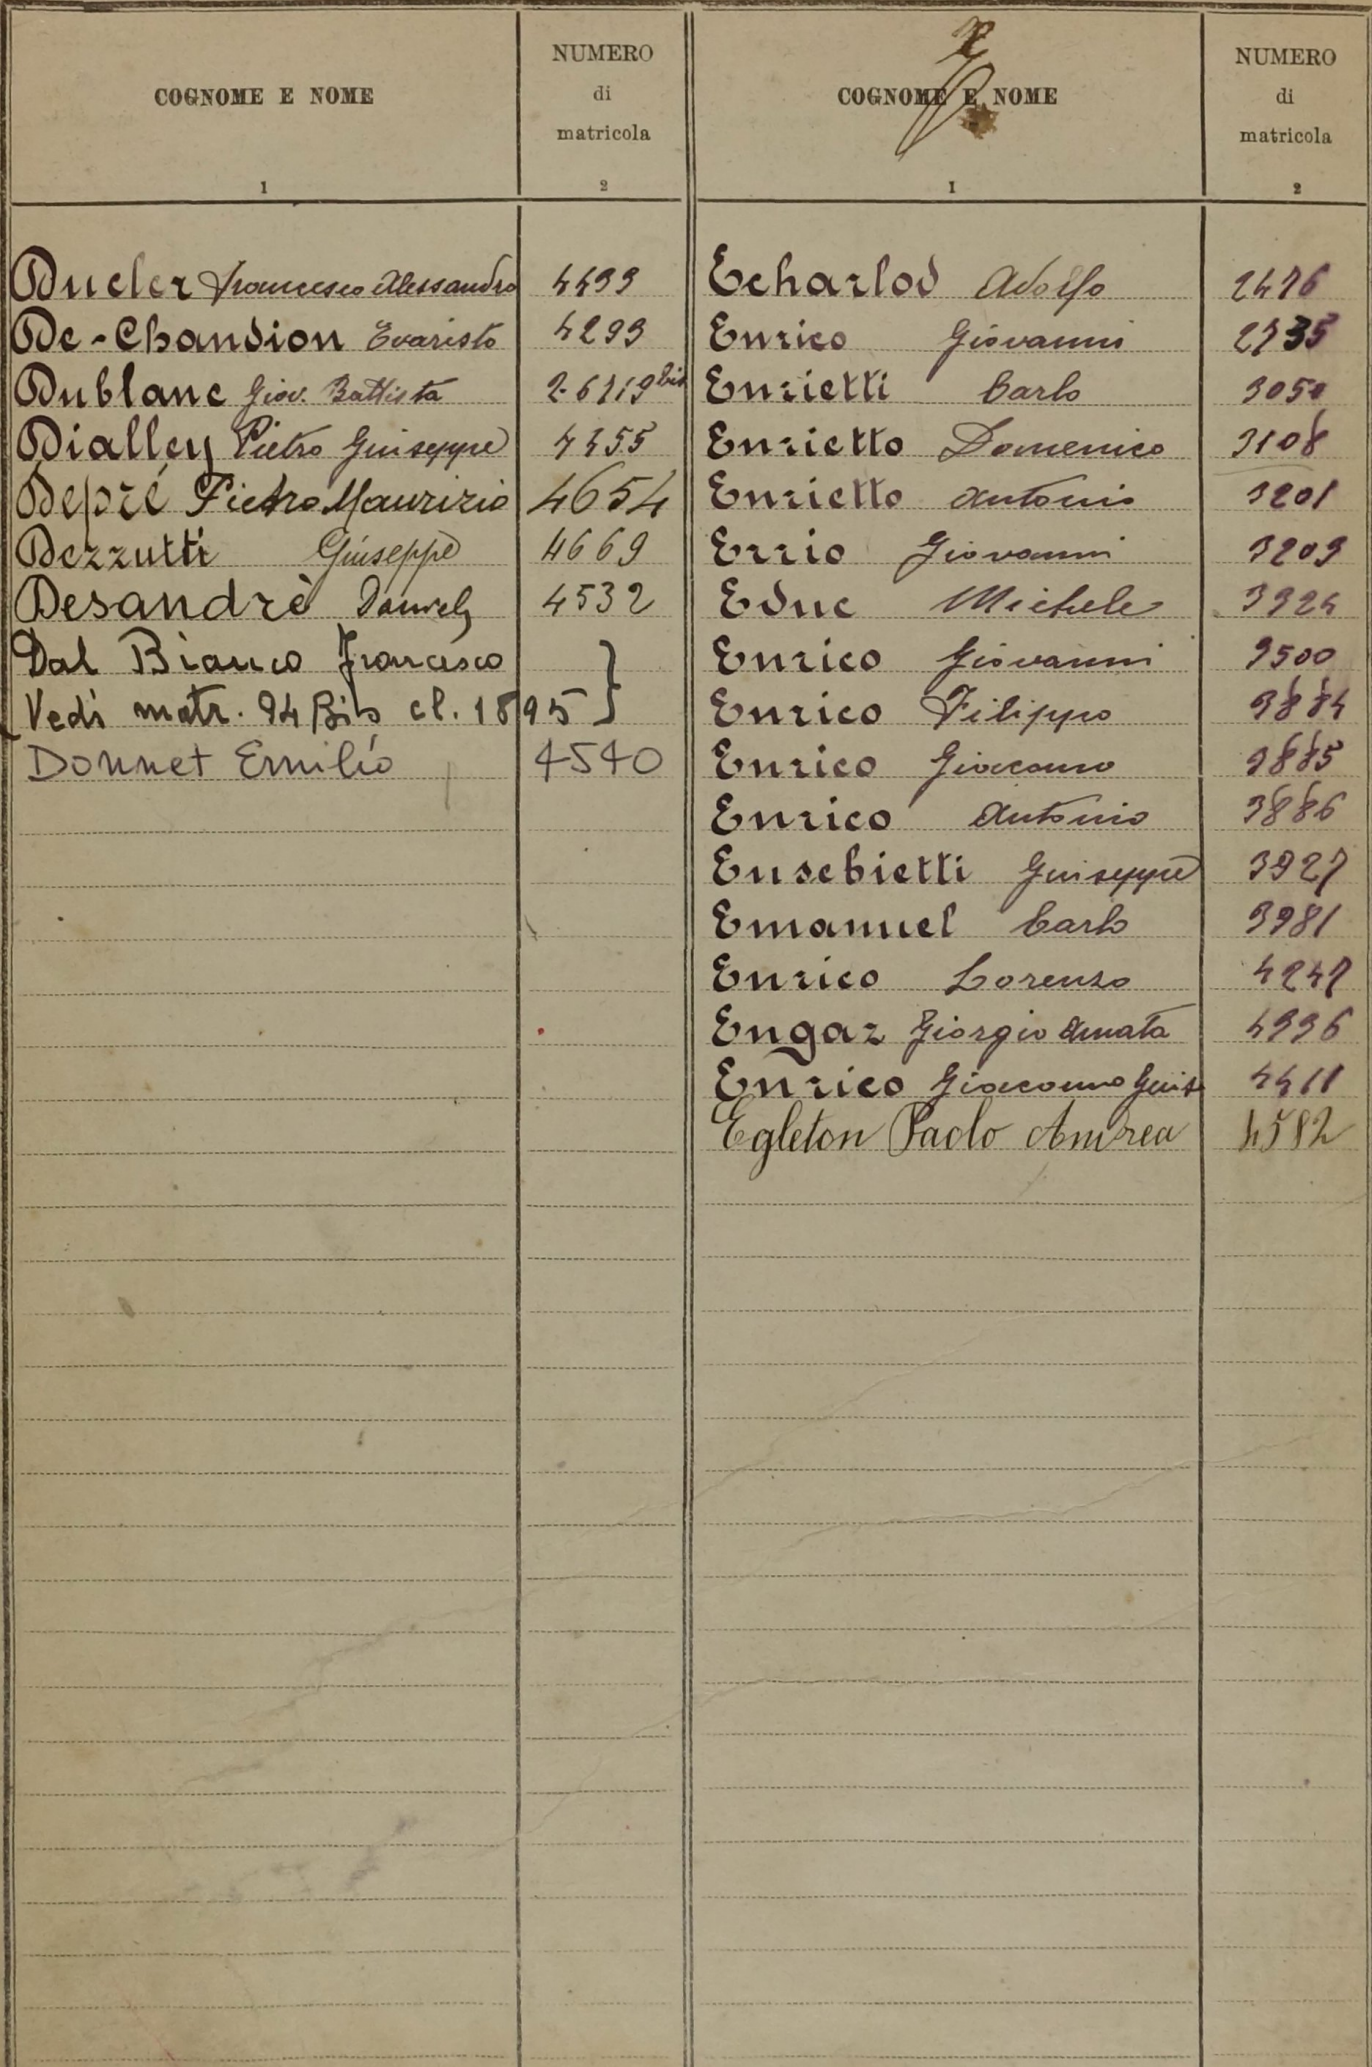 COGNOME E NOME
NUMERO
di
matricola
1
2
Ducler Francesco Alessandro 4499
De-Chandion Evaristo 4299
Dublanc Giov. Battista 2-6719 bis
Dialley Pietro Giuseppe 4455
Depré Pietro Maurizio 4654
Dezzutti Giuseppe 4669
Desandrè Daniele 4532
Dal Bianco Francesco }
Vedi matr. 94 Bis cl. 1895
Donnet Emilio 4540
E
COGNOME E NOME
NUMERO
di
matricola
1
2
Echarlod Adolfo 2476
Enrico Giovanni 2735
Enrietti Carlo 3050
Enrietto Domenico 3108
Enrietto Antonio 3201
Errio Giovanni 3209
Educ Michele 3324
Enrico Giovanni 3500
Enrico Filippo 3884
Enrico Giacomo 3885
Enrico Antonio 3886
Eusebietti Giuseppe 3927
Emanuel Carlo 3981
Enrico Lorenzo 4247
Engaz Giorgio Amato 4336
Enrico Giacomo Giuse 4411
Egleton Paolo Andrea 4582